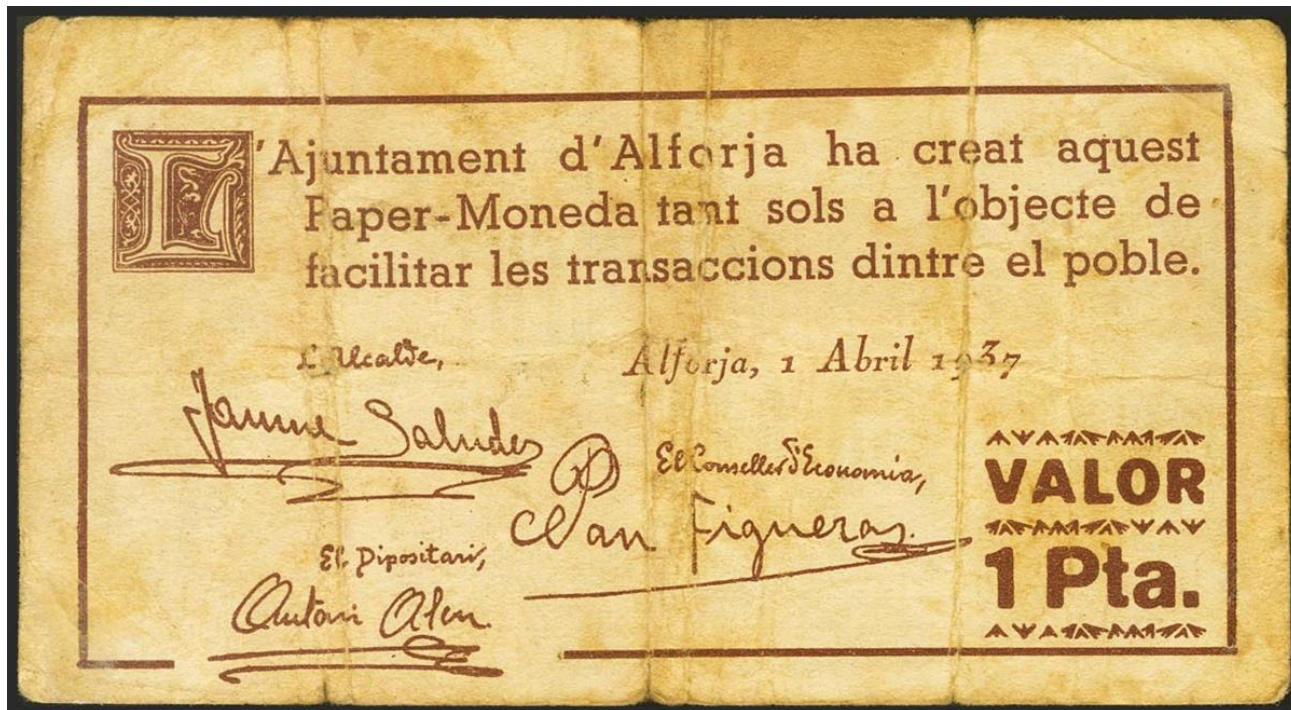 L'Ajuntament d'Alforja ha creat aquest
Paper-Moneda tant sols a l'objecte de
facilitar les transaccions dintre el poble.
L'Alcalde,
Alforja, 1 Abril 1937
Jaume Saludes
El Conseller d'Economia,
Joan Figueras
El Dipositari,
Antoni
VALOR
1 Pta.